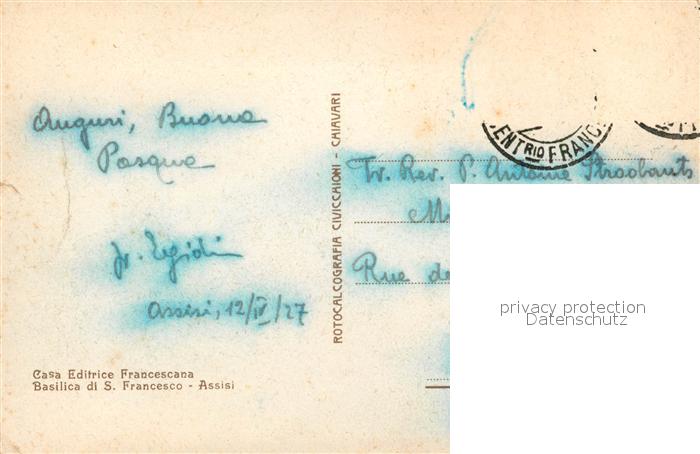 Auguri, Buona
Pasqua
fr. Egidi
Assisi, 12/IV/27
Casa Editrice Francescana
Basilica di S. Francesco - Assisi
ROTOCALCOGRAFIA CIVICCHIONI - CAIAVARI
ENTRIO FRANC
Tr. Rev. P. Antoine Straobants
Rue de
privacy protection
Datenschutz